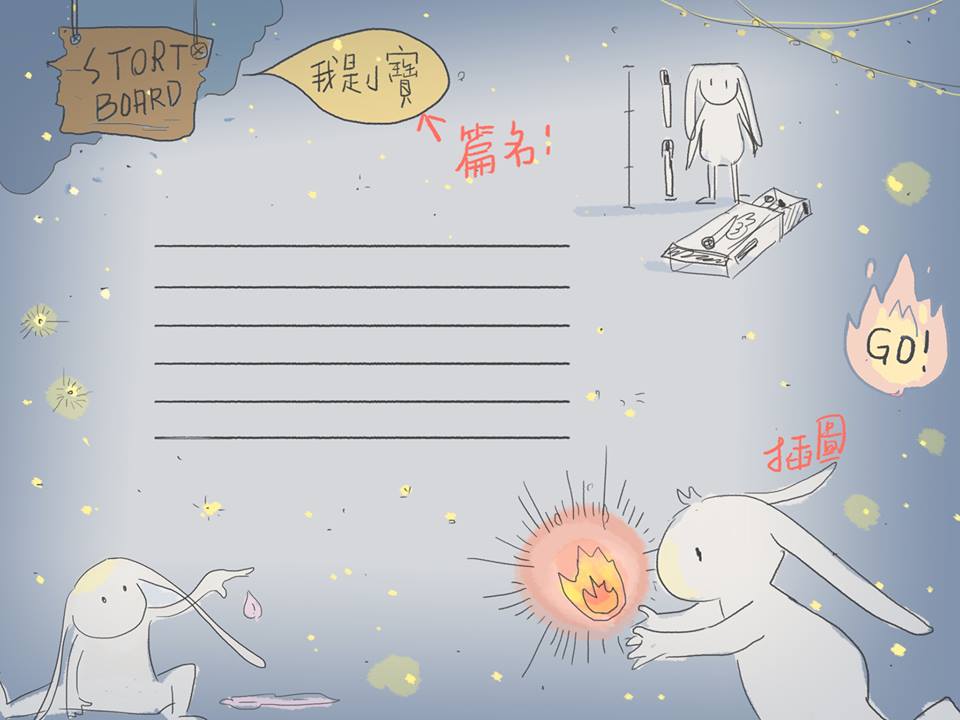 STORT
BOARD
我是小寶
篇名!
GO!
插圖